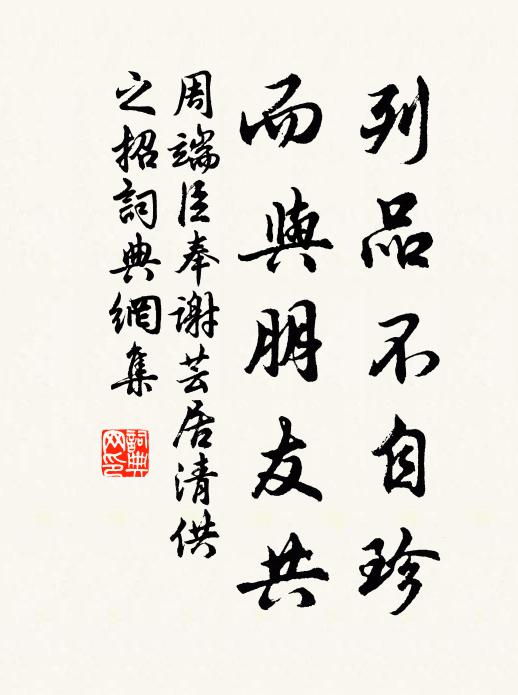 列品不自珍
而與朋友共
周端臣奉謝芸居清供
之招詞典網集
詞典
网印